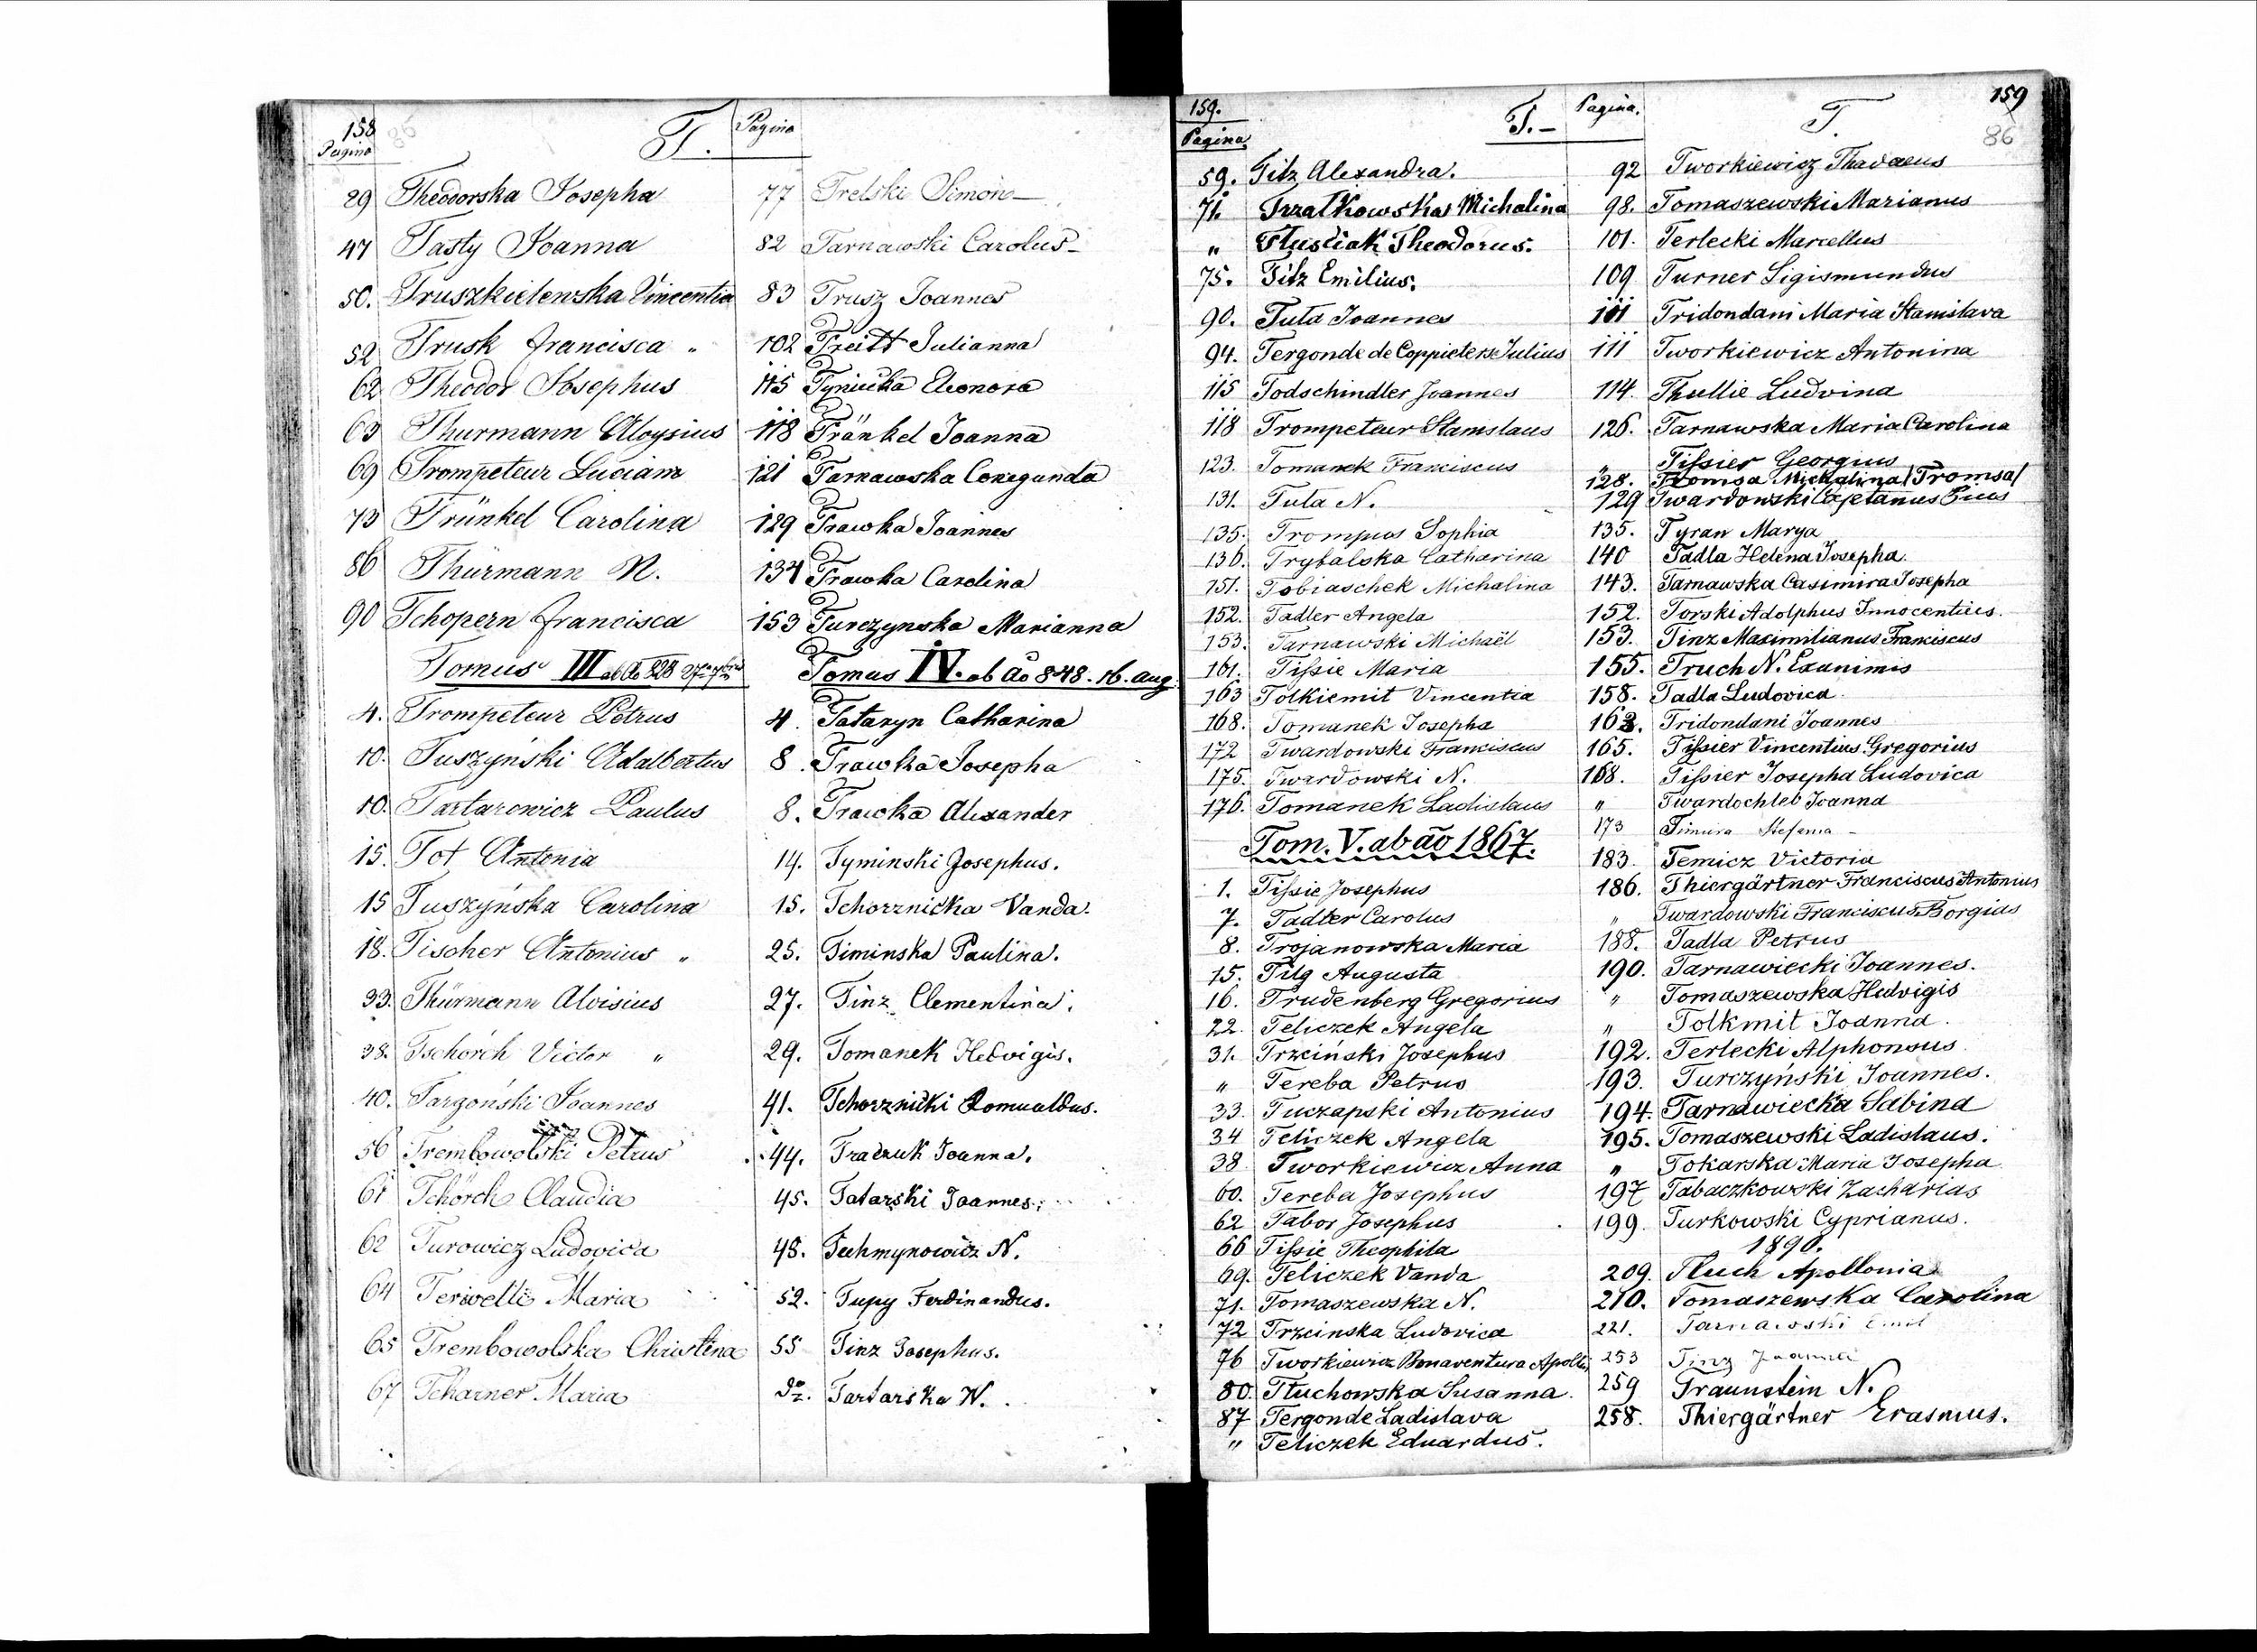 158
86
Pagina
T.
29 Theodorska Josepha
47 Tasty Joanna
50. Truszkielewska Vincentia
52 Trusk Francisca "
62 Theodor Josephus
63 Thurmann Aloysius
69 Trompeteur Luciam
73 Tränkel Carolina
86 Thürmann N.
90 Tchopern Francisca
Tomus III ab Ao 828
4. Trompeteur Petrus
10. Tuszyński Adalbertus
10. Tartarowicz Paulus
15. Tot Antonia
15 Tuszyńska Carolina
18. Tischer Antonius "
33. Thürmann Aloisius
38. Tschörch Victor "
40. Targoński Joannes
56 Trembowolski Petrus
61 Tchörch Claudia
62 Turowicz Ludovica
64 Terwelli Maria
65 Trembowolska Christina
67 Tcharner Maria
Pagina
77 Trelski Simon
82 Tarnawski Carolus
83 Trusz Joannes
102 Treitt Julianna
115 Tynicka Eleonora
118 Tränkel Joanna
121 Tarnawska Conegunda
129 Trawka Joannes
134 Trawka Carolina
153 Turczynska Marianna
Tomus IV. ab Ao 848. 16. aug.
4. Tataryn Catharina
8. Trawka Josepha
8. Trawka Alexander
14. Tyminski Josephus.
15. Tchorznicka Vanda.
25. Timinska Paulina.
27. Tinz Clementina.
29. Tomanek Hedvigis.
41. Tchorznicki Romualdus.
44. Traczuk Joanna.
45. Tatarski Joannes.
48. Techmynowicz N.
52. Tupy Ferdinandus.
55 Tinz Josephus.
Tartarska N.
159.
Pagina
T.-
59. Titz Alexandra.
71. Trzatkowska Michalina
" Tłusciak Theodorus.
75. Titz Emilius.
90. Tuta Joannes
94. Tergonde de Coppieters Julius
115 Todschindler Joannes
118 Trompeteur Stanislaus
123. Tomanek Franciscus
131. Tuta N.
135. Trompus Sophia
136. Trybalska Catharina
151. Tobiaschek Michalina
152. Tadler Angela
153. Tarnawski Michaël
161. Tißie Maria
163 Tolkiemit Vincentia
168. Tomanek Josepha
172 Twardowski Franciscus
175. Twardowski N.
176. Tomanek Ladislaus
Tom. V. ab ão 1867.
1. Tißie Josephus
7. Tadler Carolus
8. Trojanowska Maria
15. Tilg Augusta
16. Trudenberg Gregorius
22. Teliczek Angela
31. Trzciński Josephus
" Tereba Petrus
33. Tuczapski Antonius
34 Teliczek Angela
38 Tworkiewicz Anna
60. Tereba Josephus
62 Tabor Josephus
66 Tißie Theophila
69. Teliczek Vanda
71. Tomaszewska N.
72 Trzcinska Ludovica
76 Tworkiewicz Bonaventura
80. Tłuchowska Susanna.
87 Tergonde Ladislava
" Teliczek Eduardus.
Pagina.
T.
159
86
92 Tworkiewicz Thadaeus
98. Tomaszewski Marianus
101. Terlecki Marcellus
109 Turner Sigismundus
111 Tridondani Maria Stanislava
111 Tworkiewicz Antonina
114. Thullie Ludvina
126. Tarnawska Maria Carolina
" Tißier Georgius
128. Tromsa Michalina /Tromsa/
129 Twardowski Cajetanus Pius
135. Tyran Marya
140 Tadla Helena Josepha.
143. Tarnawska Casimira Josepha
152. Torski Adolphus Innocentius.
153. Tinz Maximilianus Franciscus
155. Truch N. Exanimis
158. Tadla Ludovica.
162. Tridondani Joannes
165. Tißier Vincentius Gregorius
168. Tißier Josepha Ludovica
" Twardochleb Joanna
173 Timura Stefania
183. Temicz Victoria
186. Thiergärtner Franciscus Antonius
" Twardowski Franciscus Borgias
188. Tadla Petrus
190. Tarnawiecki Joannes.
" Tomaszewska Hedvigis
" Tolkmit Joanna.
192. Terlecki Alphonsus.
193. Turczyński Joannes.
194. Tarnawiecka Sabina
195. Tomaszewski Ladislaus.
" Tokarska Maria Josepha
197 Tabaczkowski Zacharias
199. Turkowski Cyprianus.
1890.
209. Tłuch Apollonia
210. Tomaszewska Carolina
221. Tarnawski Emil
253 Tinz Joanna
259 Traunstein N.
258. Thiergärtner Erasmus.